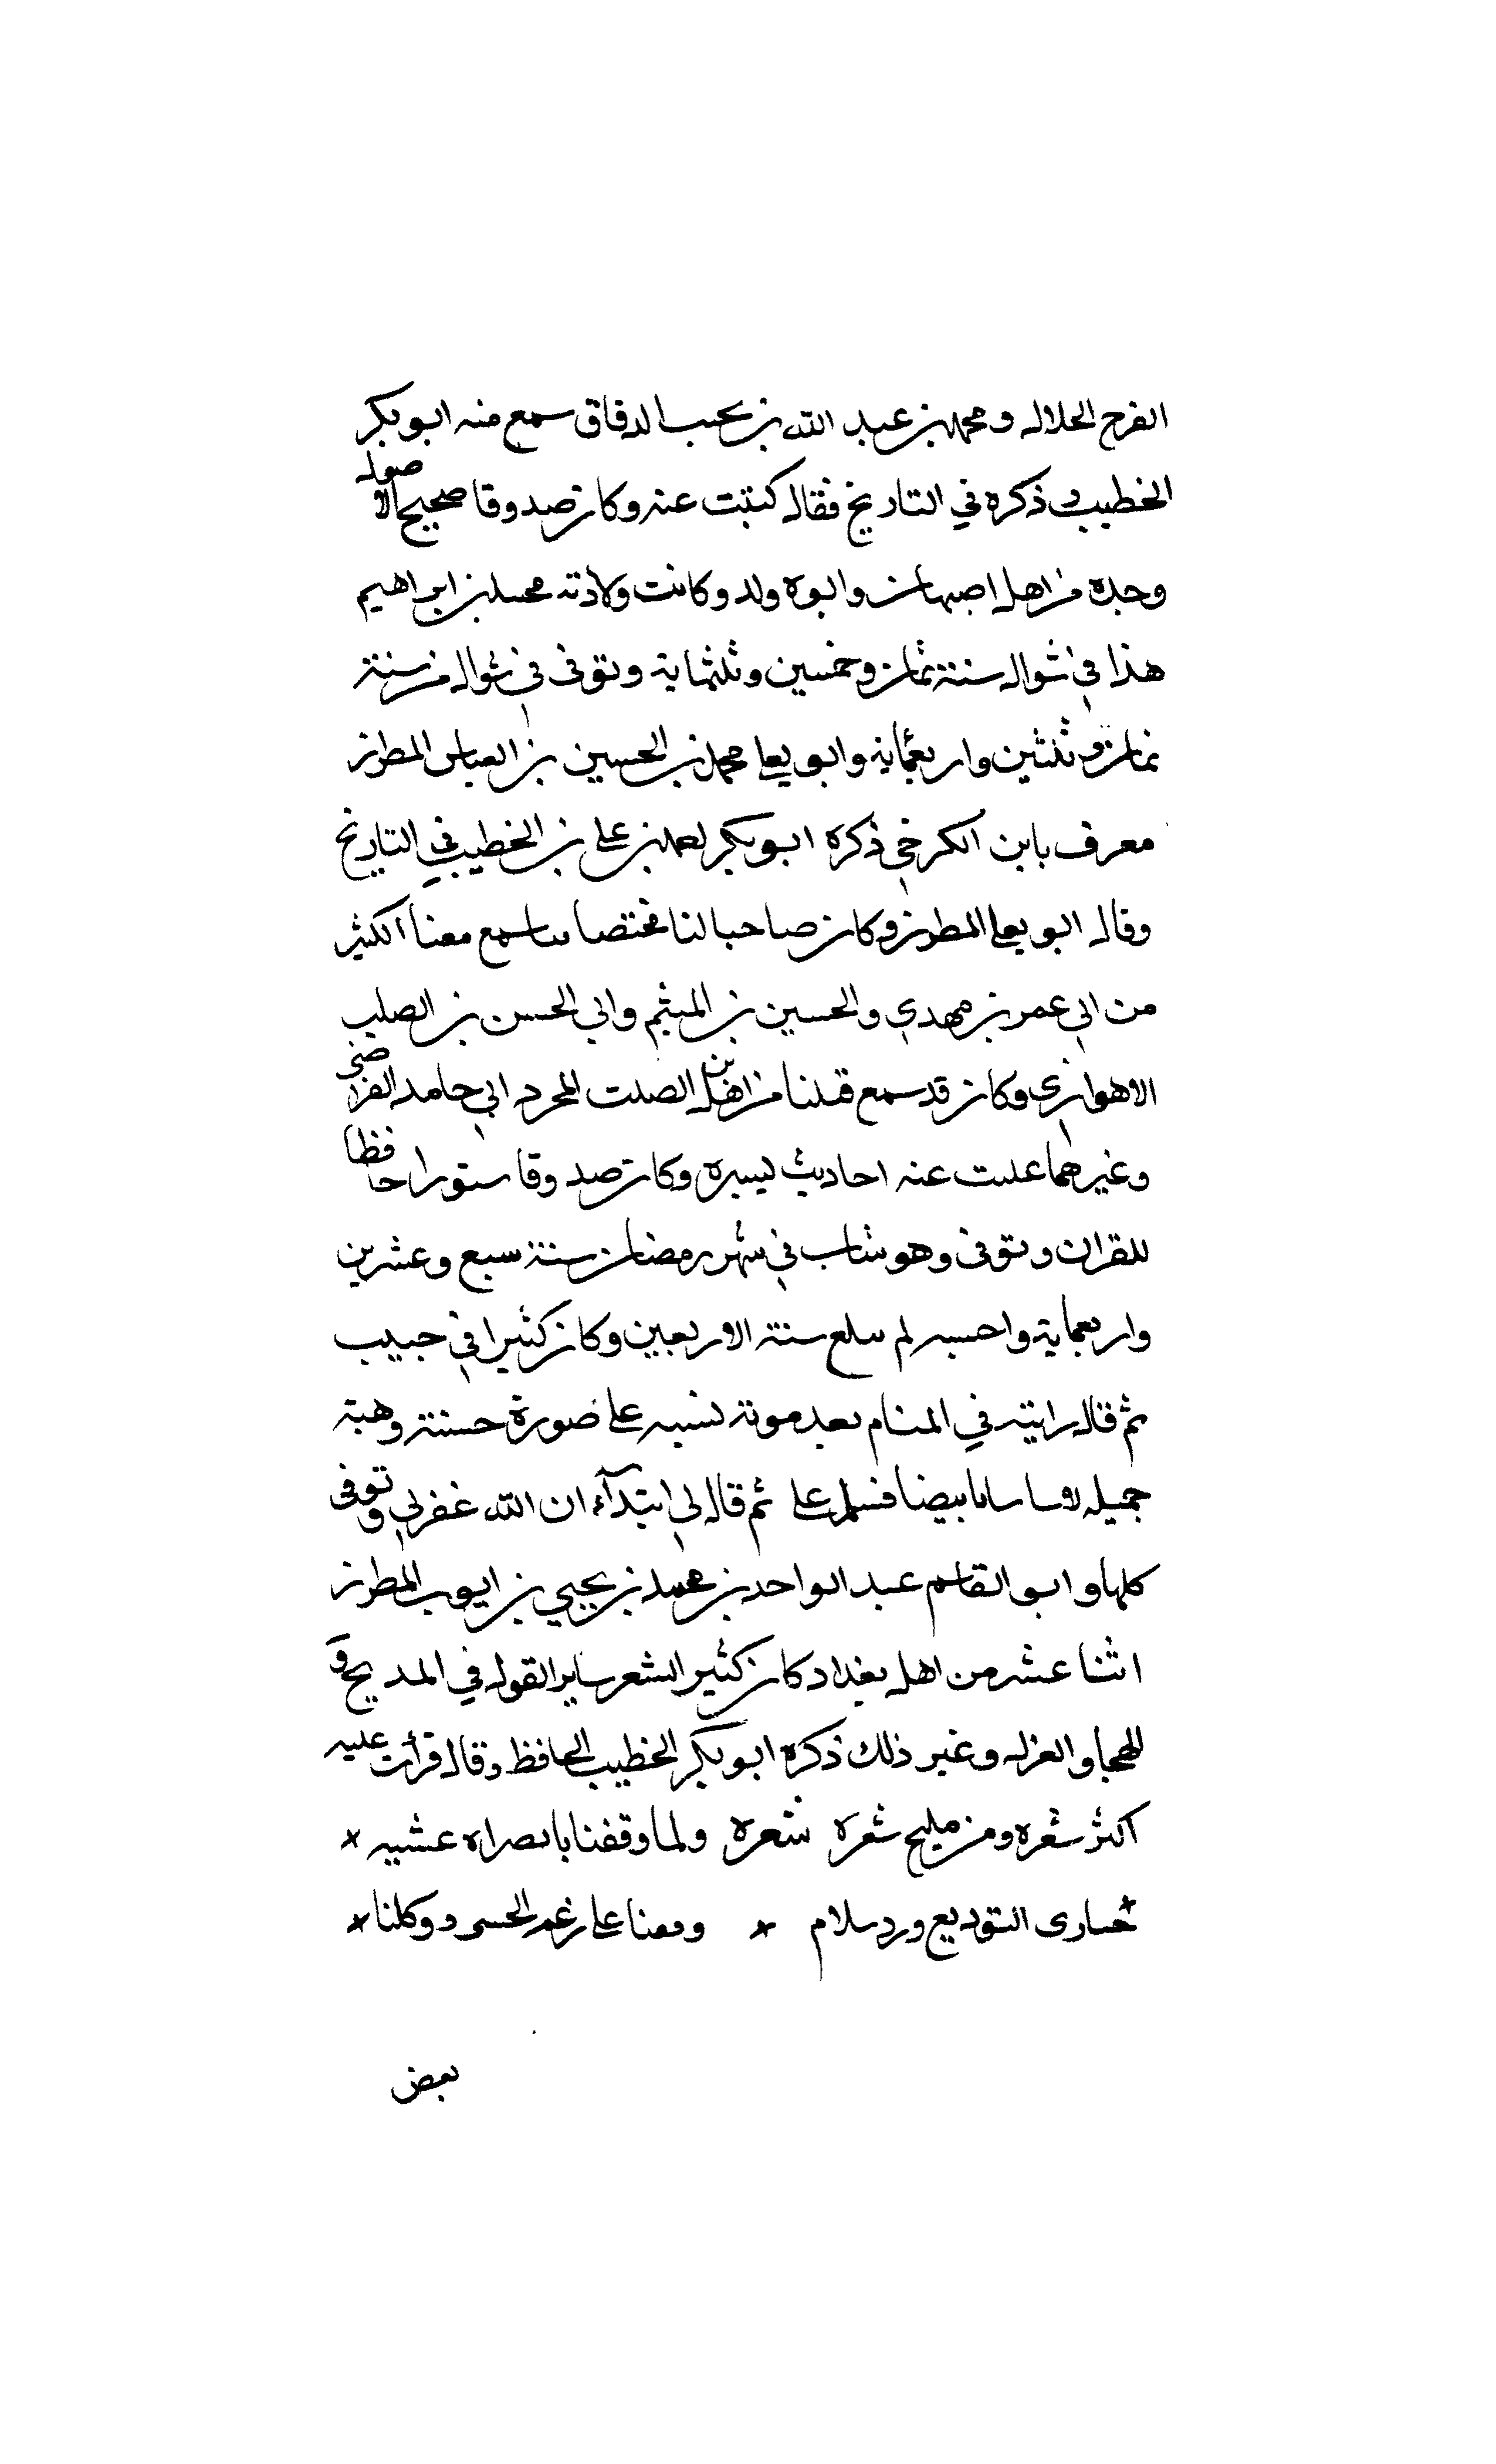 الفرج الخلال ومحمد بن عبد الله بن بخيت الدقاق سمع منه ابو بكر
الخطيب وذكره في التاريخ فقال كتبت عنه وكان صدوقا صحيح الاصول
وجده من اهل اصبهان وابوه ولد وكانت ولادته محمد بن ابراهيم
هذا في شوال سنة ثمان وخمسين وثلثماية وتوفى في شوال من سنة
ثمان وثلثين واربعماية وابو يعلى محمد بن الحسين بن العباس المطرز
معرف بابن الكرخي ذكره ابو بكر احمد بن علي بن الخطيب في التاريخ
وقال ابو يعلى المطرز وكان صاحبا لنا مختصا بنا سمع معنا الكثير
من ابي عمر بن مهدي والحسين بن المتيم وابي الحسن بن الصلت
الاهوازي وكان قد سمع قبلنا من ابن الصلت المجبر وابي حامد الفرضي
وغيرهما علت عنه احاديث يسيرة وكان صدوقا ستورا حافظا
للقران وتوفى وهو شاب في شهر رمضان سنة سبع وعشرين
واربعماية واحسبه لم يبلغ سنة الاربعين وكان كثيرا في حبيب
ثم قال رايته في المنام بعد موته بسنه على صورة حسنة وهية
جميله لابسا ثيابا بيضا فسلم علي ثم قال لي ابتدآء ان الله غفر لي وتوفى
كلها وابو القاسم عبد الواحد بن محمد بن يحيي بن ايوب المطرز
اثنا عشر من اهل بغداد كان كثير الشعر ساير القول في المديح و
الهجا والغزل وغير ذلك ذكره ابو بكر الخطيب الحافظ وقال قرأت عليه
اكثر شعره ومن مليح شعره شعره ولما وقفنا بالصراه عشيه
حيارى لتوديع ورد سلام وقفنا على رغم الحسود وكلنا
بعض